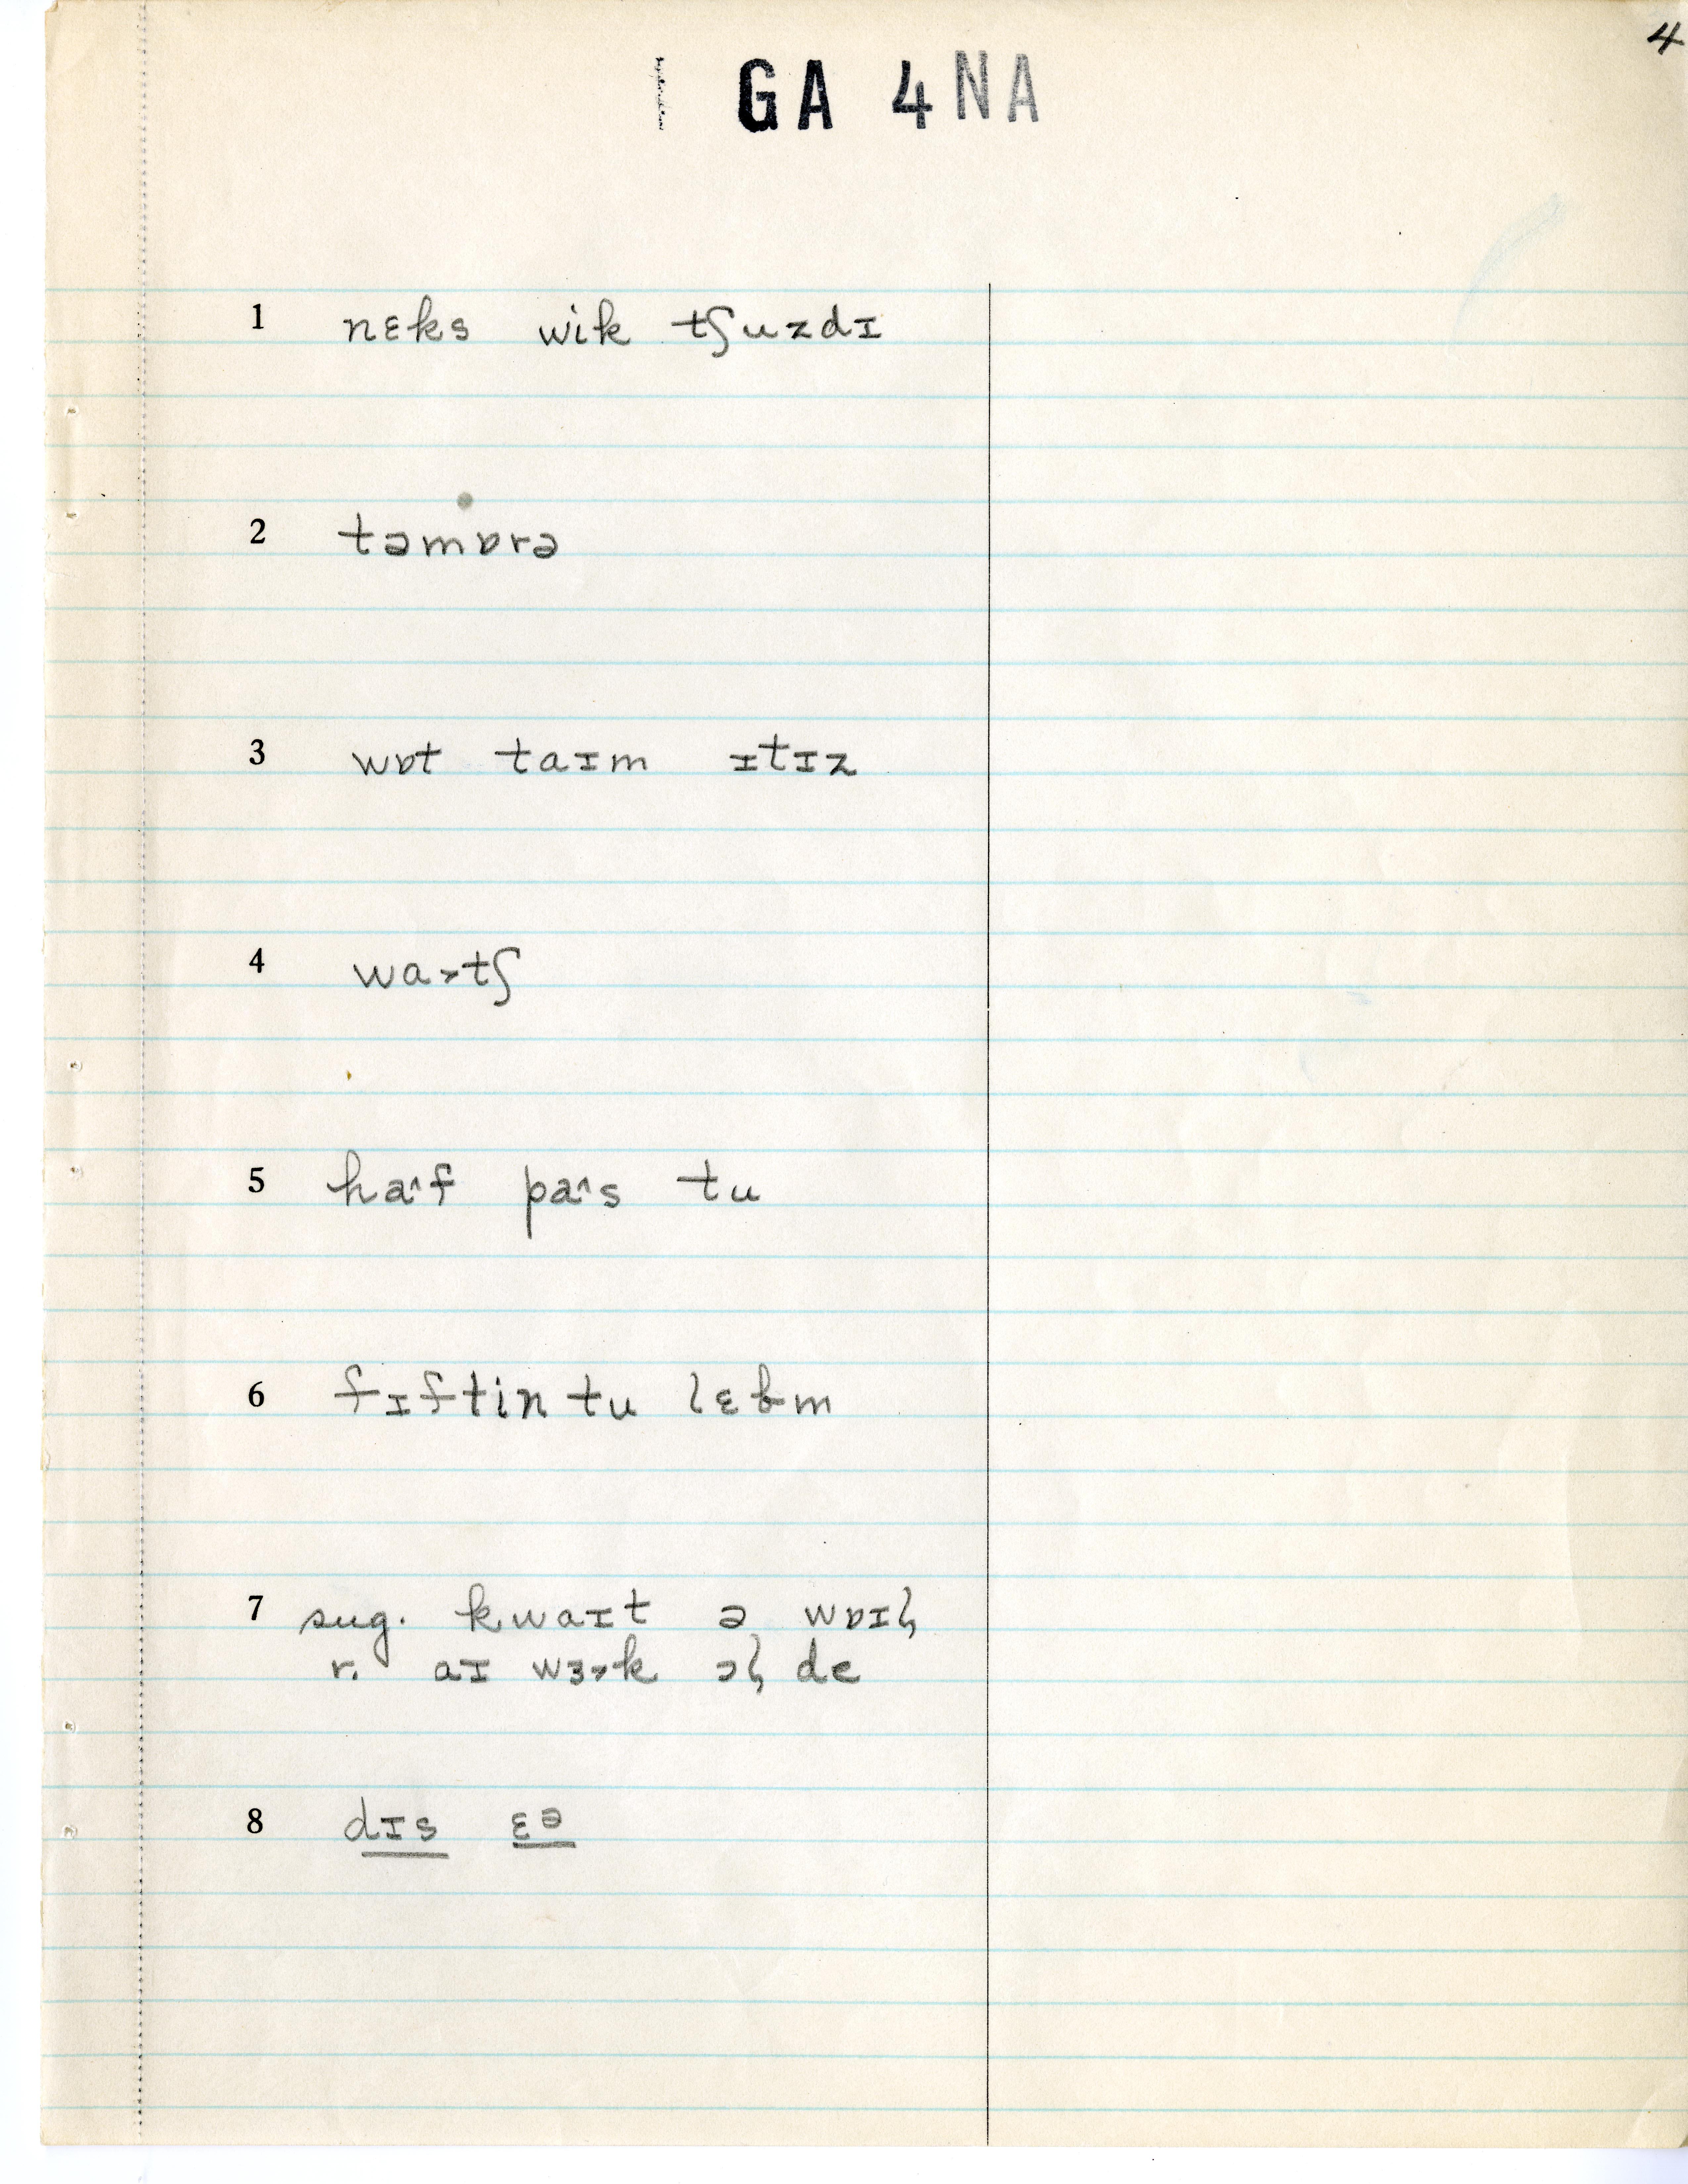 4
GA 4NA
1 nɛks wik tʃuzdɪ
2 təmɒrə
3 wɒt taɪm ɪtɪz
4 wa˃tʃ
5 ha˄f pa˄s tu
6 fɪftin tu lɛbm
7 sug. kwaɪt ə wɒɪɭ
r. aɪ wɜ˃k ɔɭ de
8 dɪs ɛə